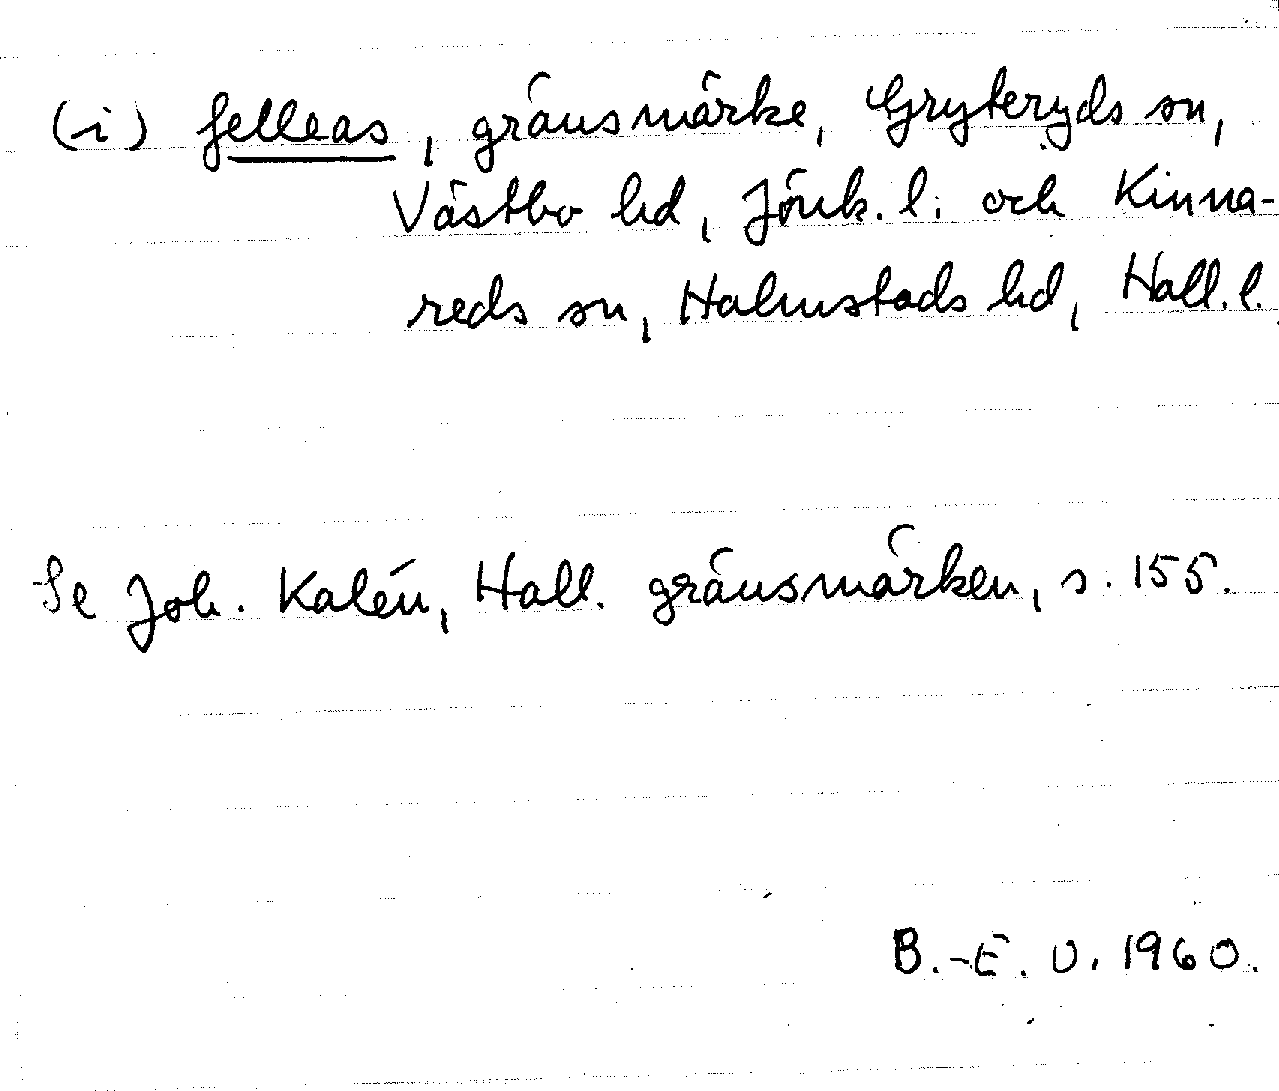 (i) felleas, gränsmärke, Gryteryds sn,
Västbo hd, Jönk. l. och Kinna-
reds sn, Halmstads hd, Hall. l.
Se Joh. Kalén, Hall. gränsmärken, s. 155.
B.-E. O. 1960.